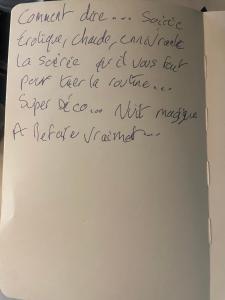 Comment dire... Soirée
Érotique, chaude, enivrante
la soirée qu'il vous faut
pour tuer la routine...
Super Déco... Nuit magique
A Refaire vraiment...